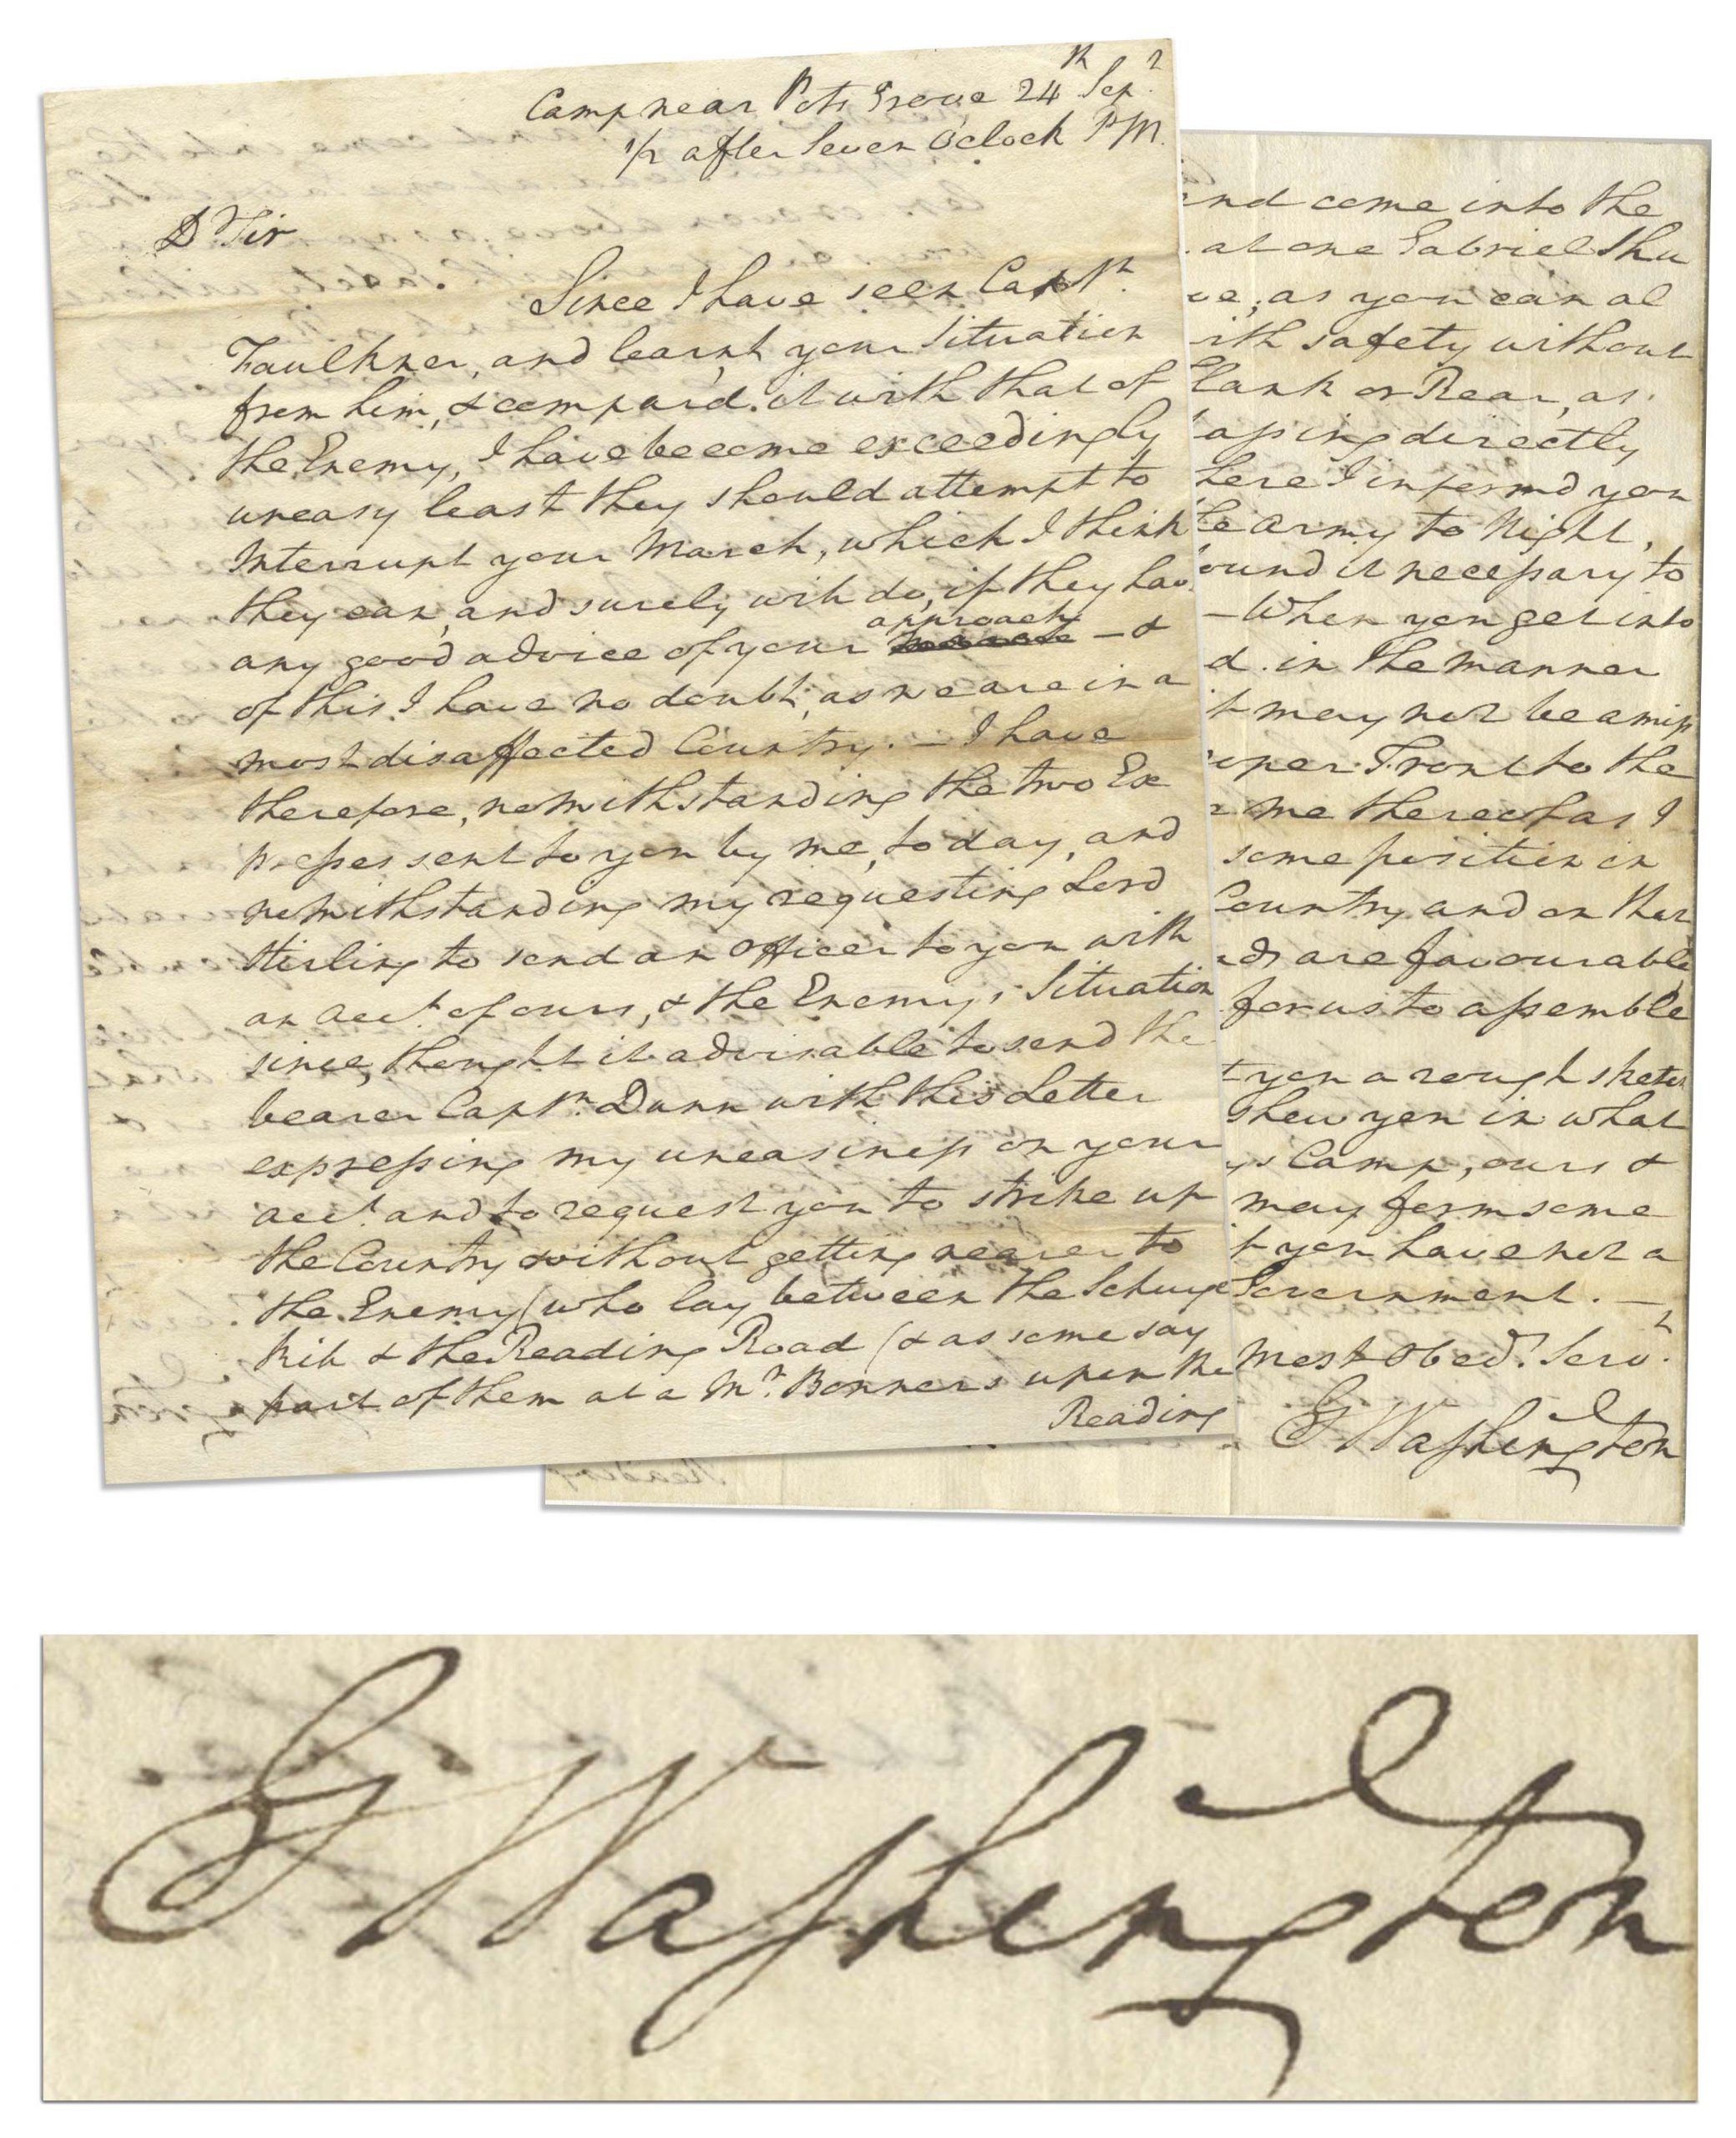 Camp near Pots Grove 24th Sepr
1/2 after Seven Oclock PM.
Dr Sir
Since I have seen Captn
Faulkner, and learnt your Situation
from him, & compard it with that of
the Enemy, I have become exceedingly
uneasy least they should attempt to
Interrupt your March, which I think
they can, and surely will do, if they hav
approach
any good advice of your — &
of this I have no doubt, as we are in a
most disaffected Country. — I have
therefore, notwithstanding the two Ex
presses sent to you by me, to day, and
notwithstanding my requesting Lord
Stirling to send an Officer to you with
an acct of ours, & the Enemys Situation
since, thought it advisable to send the
bearer Captn Dunn with this Letter
expressing my uneasiness on your
acct and to request you to strike up
the Country without getting nearer to
the Enemy (who lay between the Schuyl
kill & the Reading Road (& as some say
part of them at a Mr Bonners upon the
Reading
and come into the
at one Gabriel Shu
ve, as you can al
ith safety without
lank or Rear, as
assing directly
here I informd you
e Army to Night,
ound it necessary to
— When you get into
d in the manner
t may not be amiss
upper Front to the
me thereof as I
some position in
Country, and on that
ds are favourable
for us to assemble
t you a rough sketch
shew you in what
ys Camp, ours &
may form some
t you have not a
Government. —
Most Obedt Servt
G Washington
G Washington